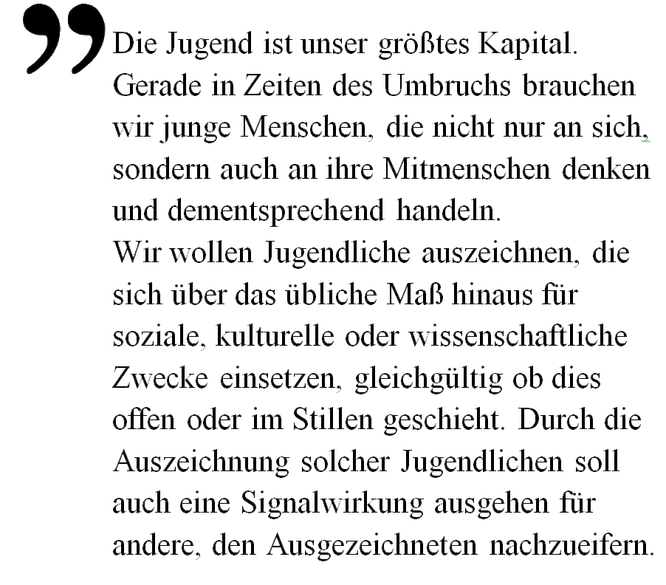 ”Die Jugend ist unser größtes Kapital.
Gerade in Zeiten des Umbruchs brauchen
wir junge Menschen, die nicht nur an sich,
sondern auch an ihre Mitmenschen denken
und dementsprechend handeln.
Wir wollen Jugendliche auszeichnen, die
sich über das übliche Maß hinaus für
soziale, kulturelle oder wissenschaftliche
Zwecke einsetzen, gleichgültig ob dies
offen oder im Stillen geschieht. Durch die
Auszeichnung solcher Jugendlichen soll
auch eine Signalwirkung ausgehen für
andere, den Ausgezeichneten nachzueifern.